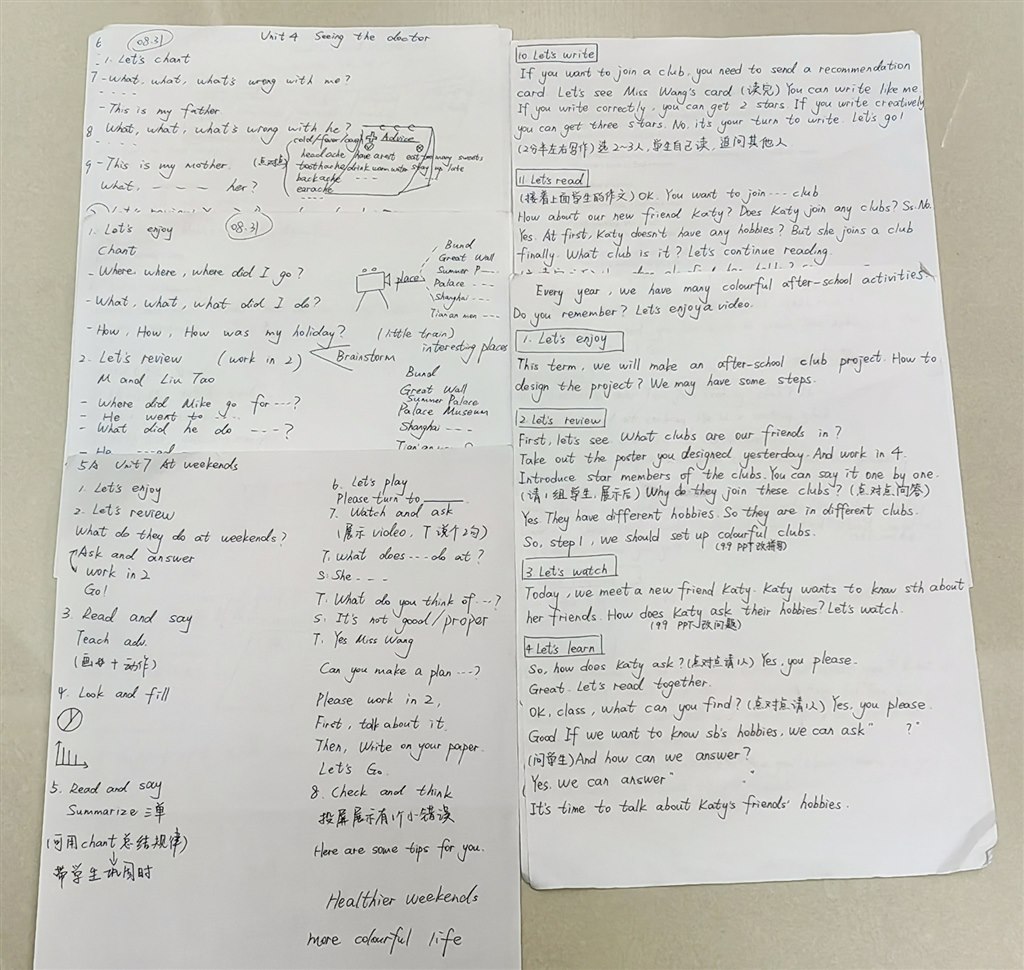 6 08.31 Unit 4 Seeing the doctor
1. Let's chant
7 - What, what, what's wrong with me?
- This is my father
8 What, what, what's wrong with he?
9 - This is my mother. (点对点)
What, - - - - her?
cold/fever/cough
headache
toothache
backache
earache
Advice
have a rest eat too many sweets
drink warm water stay up late
1. Let's enjoy 08.31
Chant
- Where where, where did I go?
- What, what, what did I do?
- How, How, How was my holiday? (little train)
place
Bund
Great Wall
Summer P - - -
Palace - - -
Shanghai - - -
Tian'an men - - -
interesting places
2. Let's review (work in 2) Brainstorm
M and Liu Tao
- Where did Mike go for ---?
- He went to
- What did he do ----?
- He -----ed
Bund
Great Wall
Summer Palace
Palace Museum
Shanghai ----
Tian'an
5A Unit 7 At weekends
1. Let's enjoy
2. Let's review
What do they do at weekends?
Ask and answer
work in 2
Go!
3. Read and say
Teach adv.
(画 + 动作)
4. Look and fill
5. Read and say
Summarize 三单
(可用chant总结规律)
带学生巩固时
6. Let's play
Please turn to
7. Watch and ask
(展示 video, T 说个2句)
T. what does --- do at?
S: She - - -
T. What do you think of --?
S: It's not good/proper
T. Yes Miss Wang
Can you make a plan ---?
Please work in 2,
First, talk about it
Then, Write on your paper.
Let's Go.
8. Check and think
投屏展示有1个小错误
Here are some tips for you.
Healthier weekends
more colourful life
10 Let's write
If you want to join a club, you need to send a recommendation
card Let's see Miss Wang's card (读完) You can write like me
If you write correctly, you can get 2 stars If you write creatively
you can get three stars. No, it's your turn to write. Let's go!
(2分半左右写作) 选2~3人, 学生自己读, 追问其他人
11 Let's read
(接着上面学生的作文) OK. You want to join --- club.
How about our new friend Katy? Does Katy join any clubs? Ss. No.
Yes. At first, Katy doesn't have any hobbies? But she joins a club
finally. What club is it? Let's continue reading.
Every year, we have many colourful after-school activities.
Do you remember? Let's enjoy a video.
1. Let's enjoy
This term, we will make an after-school club project. How to
design the project? We may have some steps.
2 Let's review
First, let's see What clubs are our friends in?
Take out the poster you designed yesterday. And work in 4.
Introduce star members of the clubs. You can say it one by one.
(请1组学生, 展示后) Why do they join these clubs? (点对点问答)
Yes. They have different hobbies. So they are in different clubs.
So, step 1, we should set up colourful clubs.
3 Let's watch
Today, we meet a new friend Katy. Katy wants to know sth about
her friends. How does Katy ask their hobbies? Let's watch.
(99 PPT 改问题)
4 Let's learn
So, how does Katy ask? (点对点请1人) Yes, you please.
Great. Let's read together.
OK, class, what can you find? (点对点请1人) Yes, you please.
Good If we want to know sb's hobbies, we can ask" ?"
(问学生) And how can we answer?
Yes. We can answer" ."
It's time to talk about Katy's friends' hobbies.